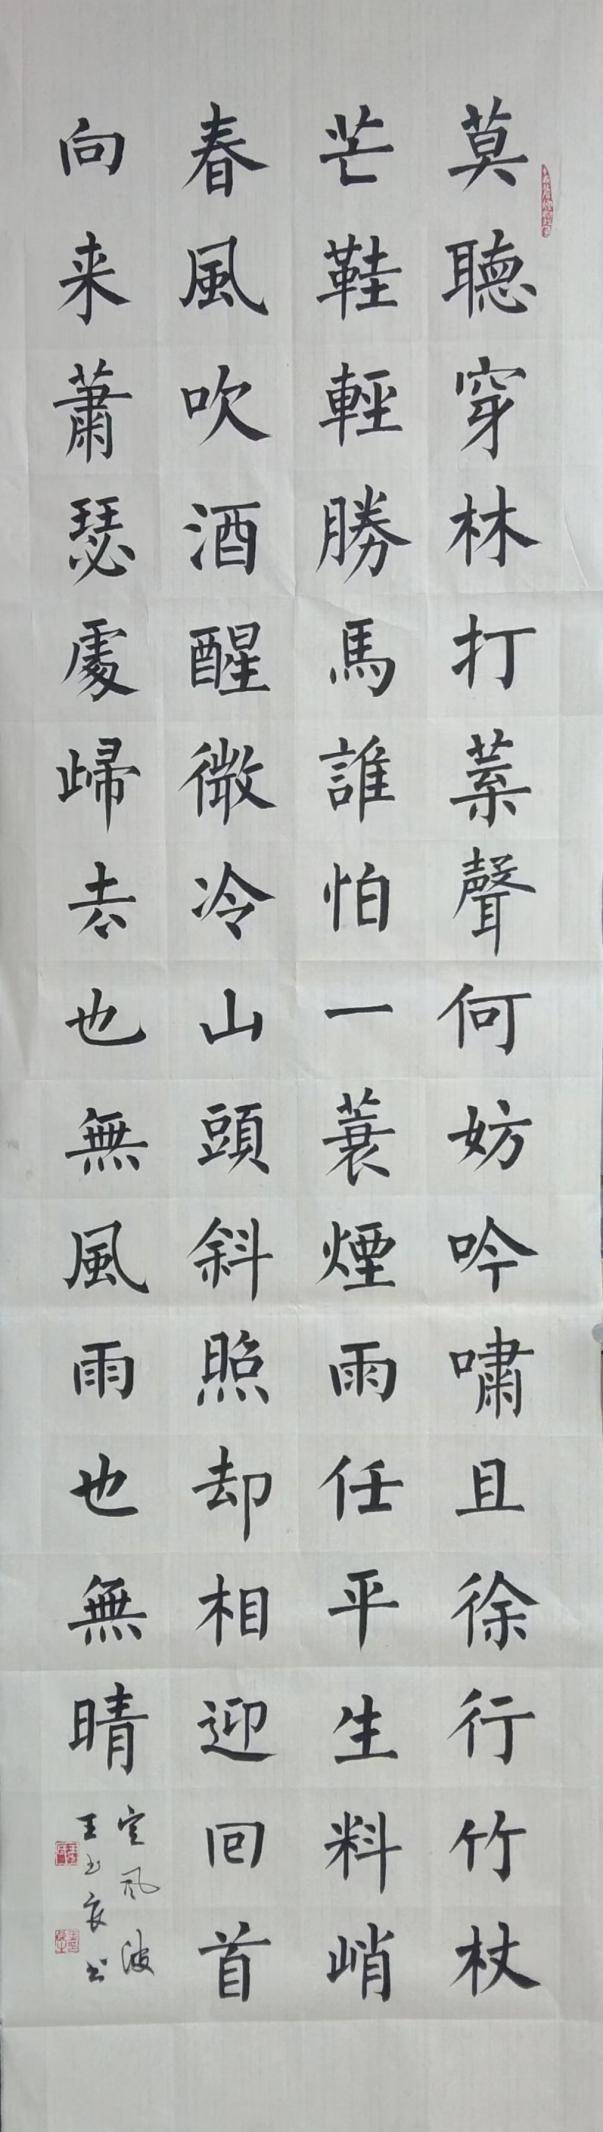 莫聽穿林打葉聲何妨吟嘯且徐行竹杖
芒鞋輕勝馬誰怕一蓑煙雨任平生料峭
春風吹酒醒微冷山頭斜照却相迎回首
向来蕭瑟處歸去也無風雨也無晴
定风波
王玉良书